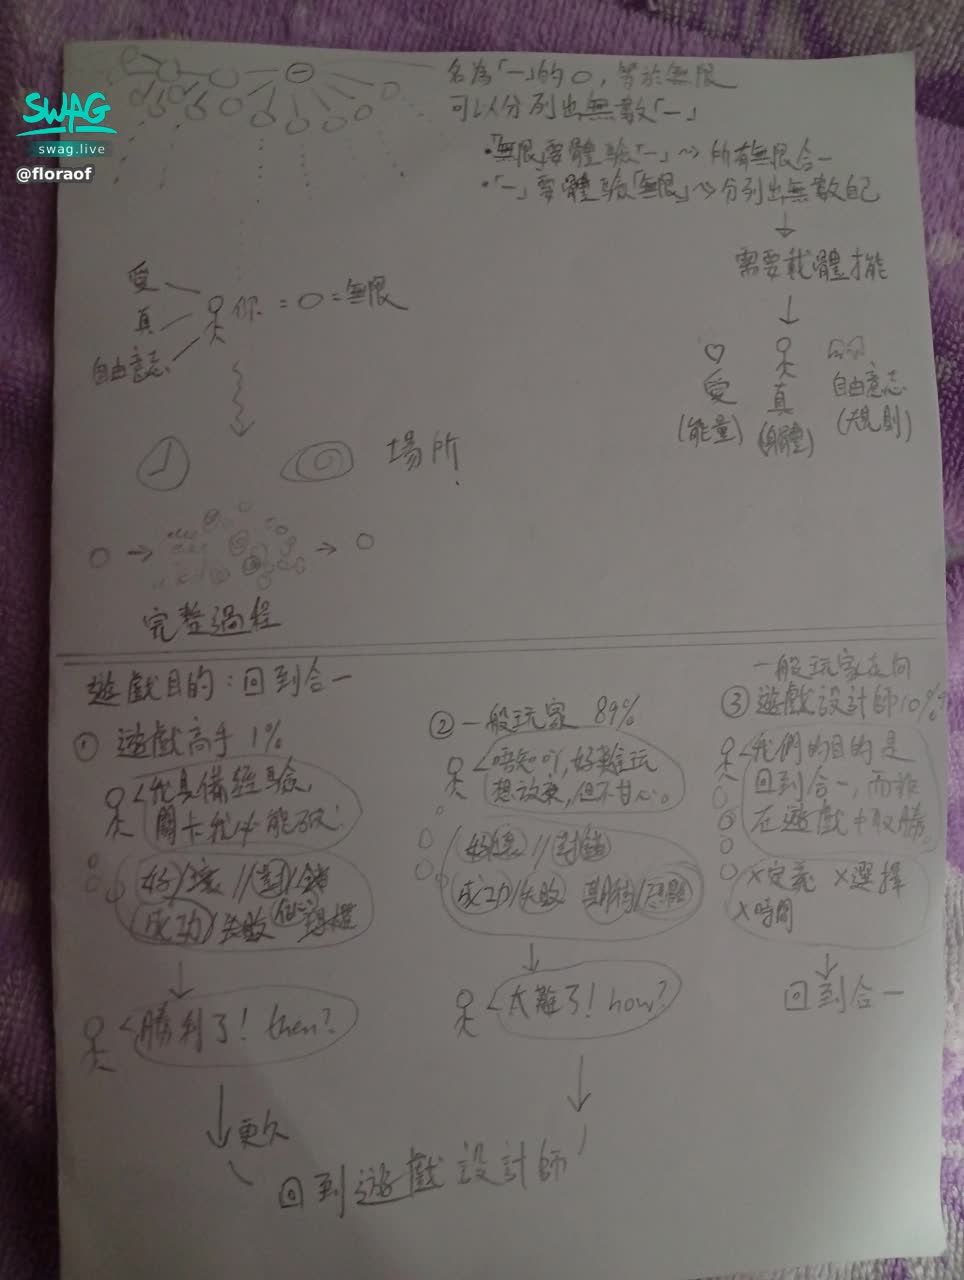 SWAG
swag.live
@floraof
一
名為「一」的○，等於無限
可以分列出無數「一」
•「無限」要體驗「一」~> 所有無限合一
•「一」要體驗「無限」~> 分列出無數自己
需要載體才能
愛
(能量)
真
(身體)
自由意志
(規則)
愛
真
自由意志
你 = ○ = 無限
場所
完整過程
遊戲目的：回到合一
① 遊戲高手 1%
我具備經驗，
關卡我必能破！
好/壞//對/錯
成功/失敗
勝利了! then?
更久
② 一般玩家 89%
唔知吖，好難玩
想放棄，但不甘心。
好/壞//對/錯
成功/失敗 期待/恐懼
太難了! how?
回到遊戲設計師
一般玩家在向
③ 遊戲設計師10%
我們的目的是
回到合一，而非
在遊戲中取勝。
X定義 X選擇
X時間
回到合一